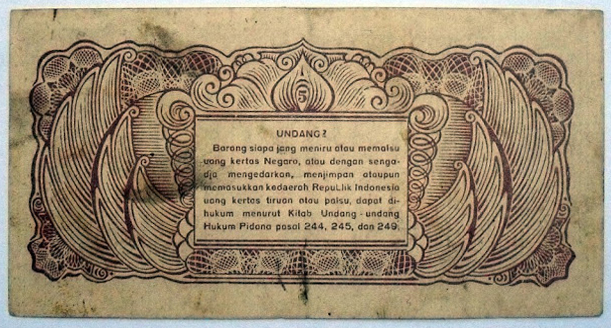 5
UNDANG²
Barang siapa jang meniru atau memalsu
uang kertas Negara, atau dengan senga-
dja mengedarkan, menjimpan ataupun
memasukkan kedaerah Republik Indonesia
uang kertas tiruan atau palsu, dapat di-
hukum menurut Kitab Undang-undang
Hukum Pidana pasal 244, 245, dan 249.